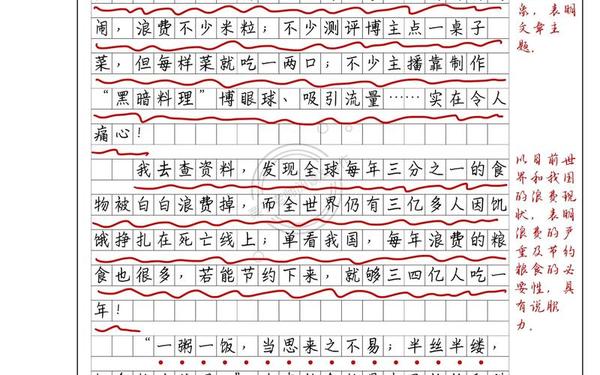 闹，浪费不少米粒；不少测评博主点一桌子
菜，但每样菜就吃一两口；不少主播靠制作
“黑暗料理”博眼球、吸引流量……实在令人
痛心！
我去查资料，发现全球每年三分之一的食
物被白白浪费掉，而全世界仍有三亿多人因饥
饿挣扎在死亡线上；单看我国，每年浪费的粮
食也很多，若能节约下来，就够三四亿人吃一
年！
“一粥一饭，当思来之不易；半丝半缕，
表明
文章主
题。
以目前世
界和我国
的浪费现
状，表明
浪费的严
重及节约
粮食的必
要性，具
有说服
力。